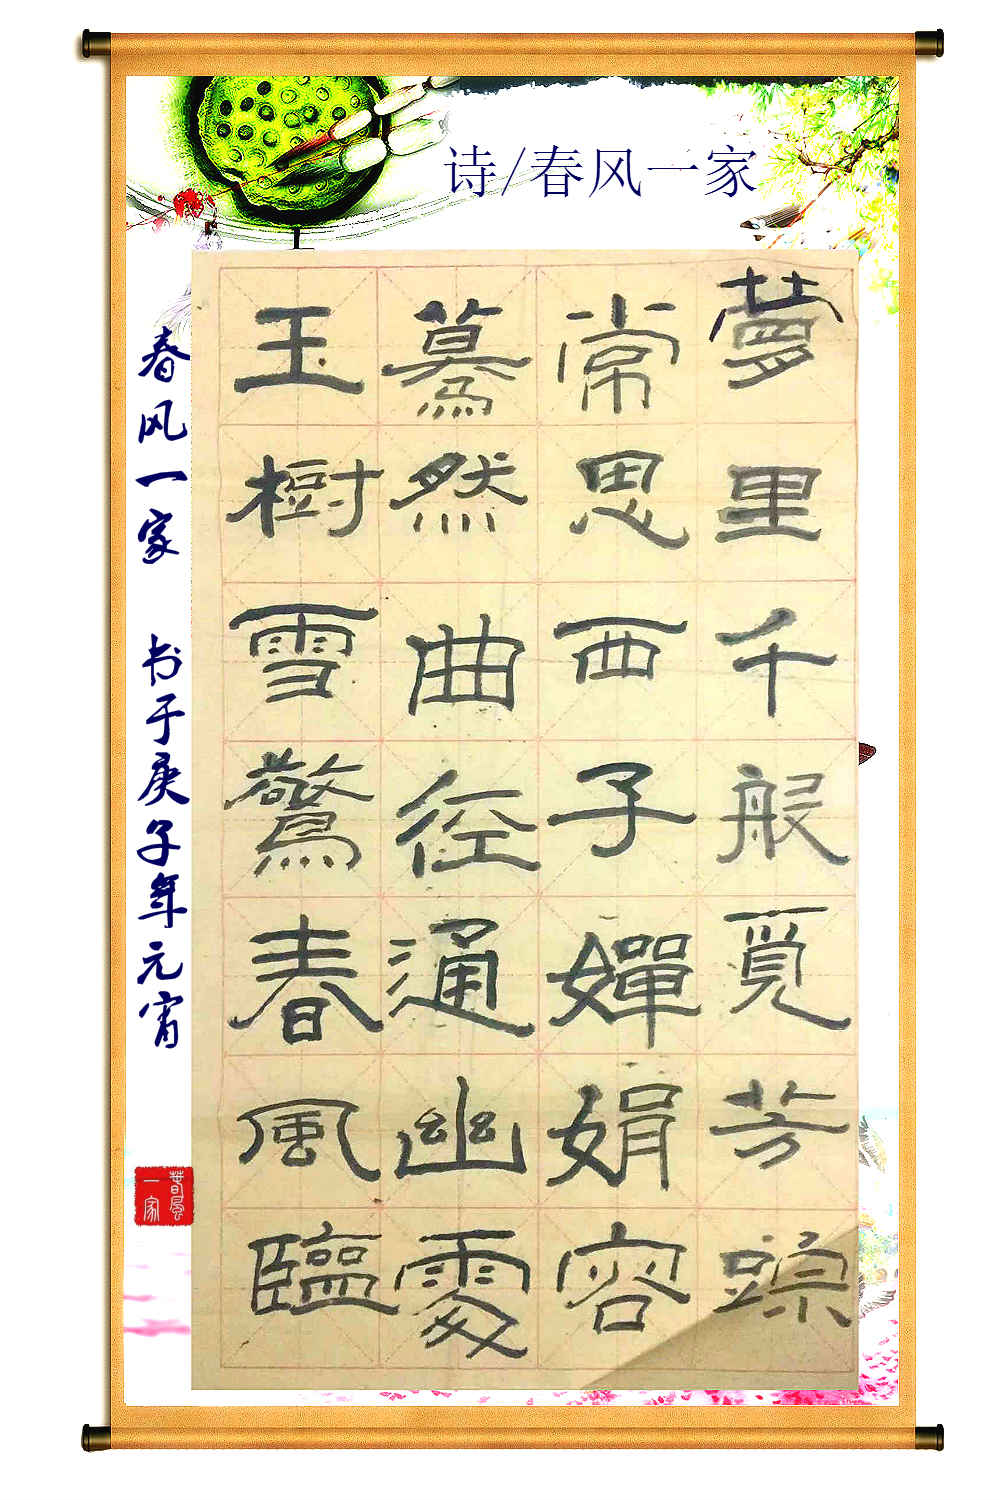 诗/春风一家
夢里千般覓芳
常思西子嬋娟容
驀然曲徑通幽處
玉樹雪驚春風臨
春风一家 书于庚子年元宵
春風一家